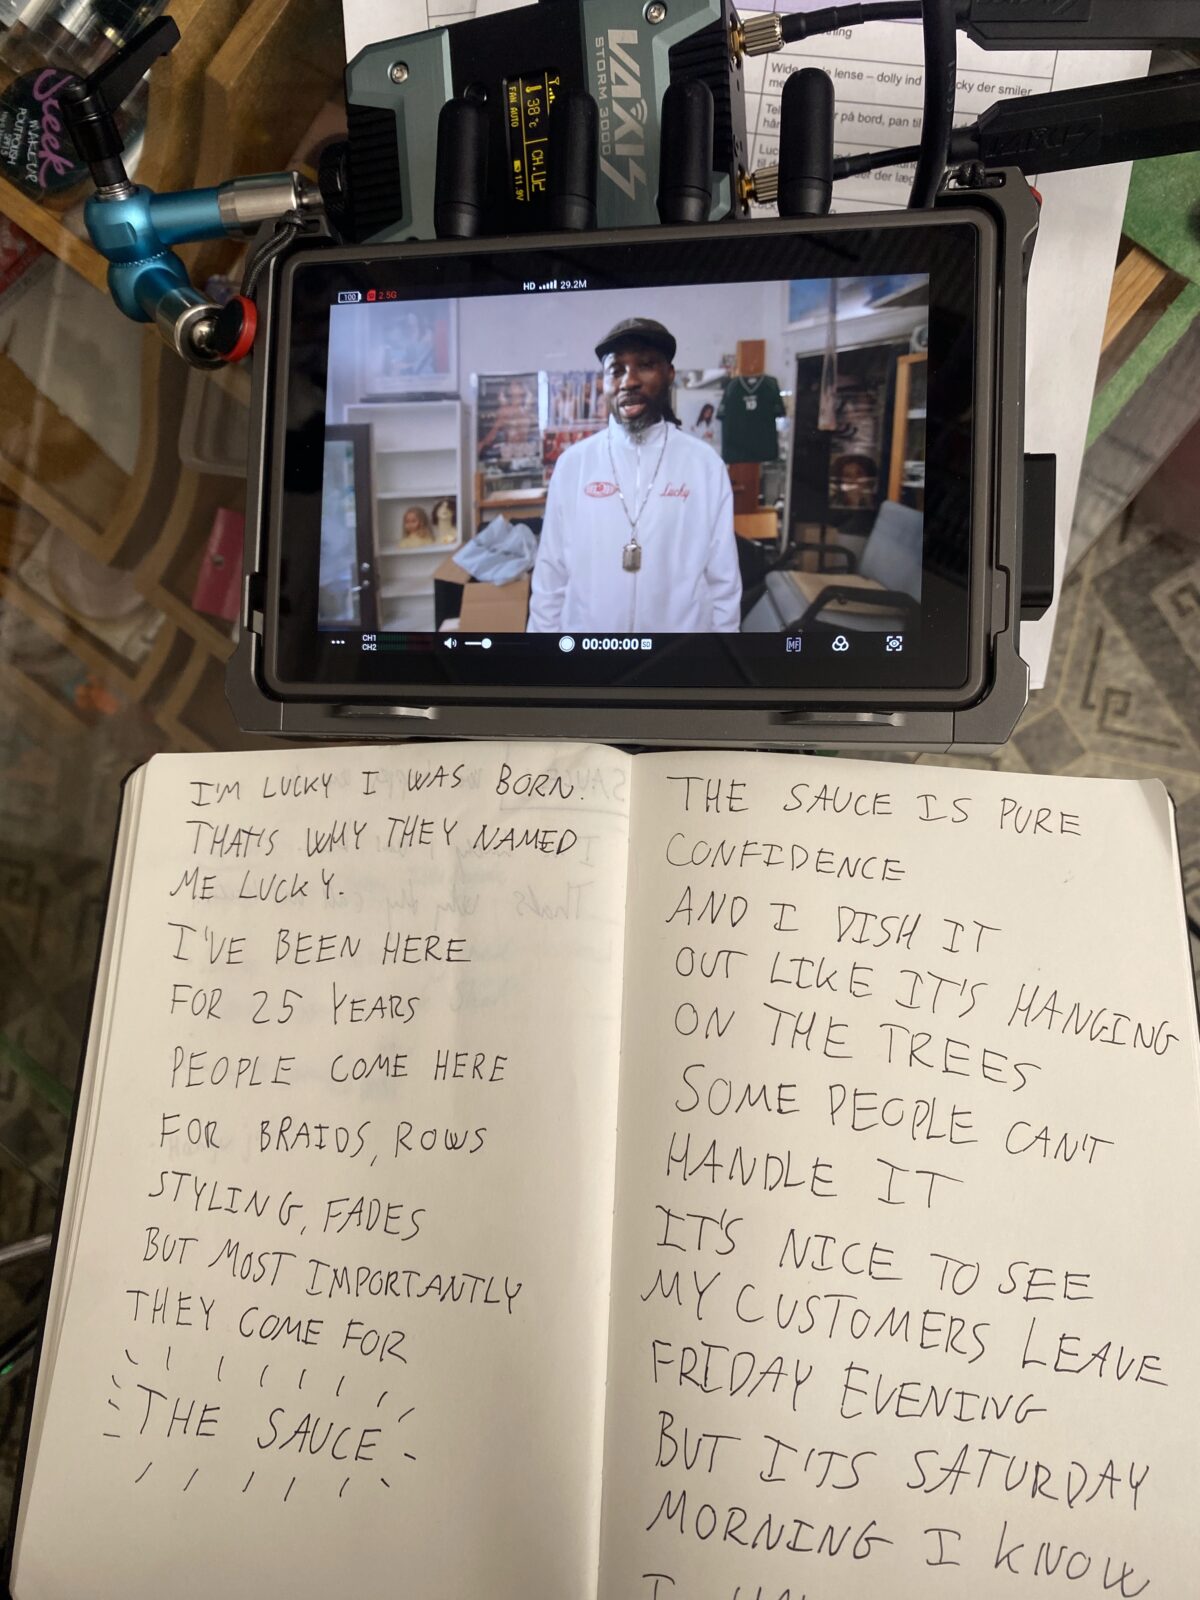 Jreek
WAXI
STORM 3000
38°c
FAN AUTO
11.9V
lense – dolly ind
der smiler
på bord, pan til
100
2.5G
HD
29.2M
10
Lucky
CH1
CH2
00:00:00
MF
I'M LUCKY I WAS BORN.
THAT'S WHY THEY NAMED
ME LUCKY.
I'VE BEEN HERE
FOR 25 YEARS
PEOPLE COME HERE
FOR BRAIDS, ROWS
STYLING, FADES
BUT MOST IMPORTANTLY
THEY COME FOR
THE SAUCE
THE SAUCE IS PURE
CONFIDENCE
AND I DISH IT
OUT LIKE IT'S HANGING
ON THE TREES
SOME PEOPLE CAN'T
HANDLE IT
IT'S NICE TO SEE
MY CUSTOMERS LEAVE
FRIDAY EVENING
BUT I'TS SATURDAY
MORNING I KNOW
I